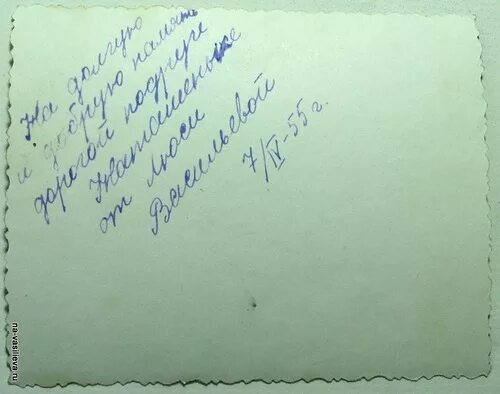 На долгую
и добрую память
дорогой подруге
Наташеньке
от Люси
Васильевой
7/IV-55 г.
na-vasilieva.ru